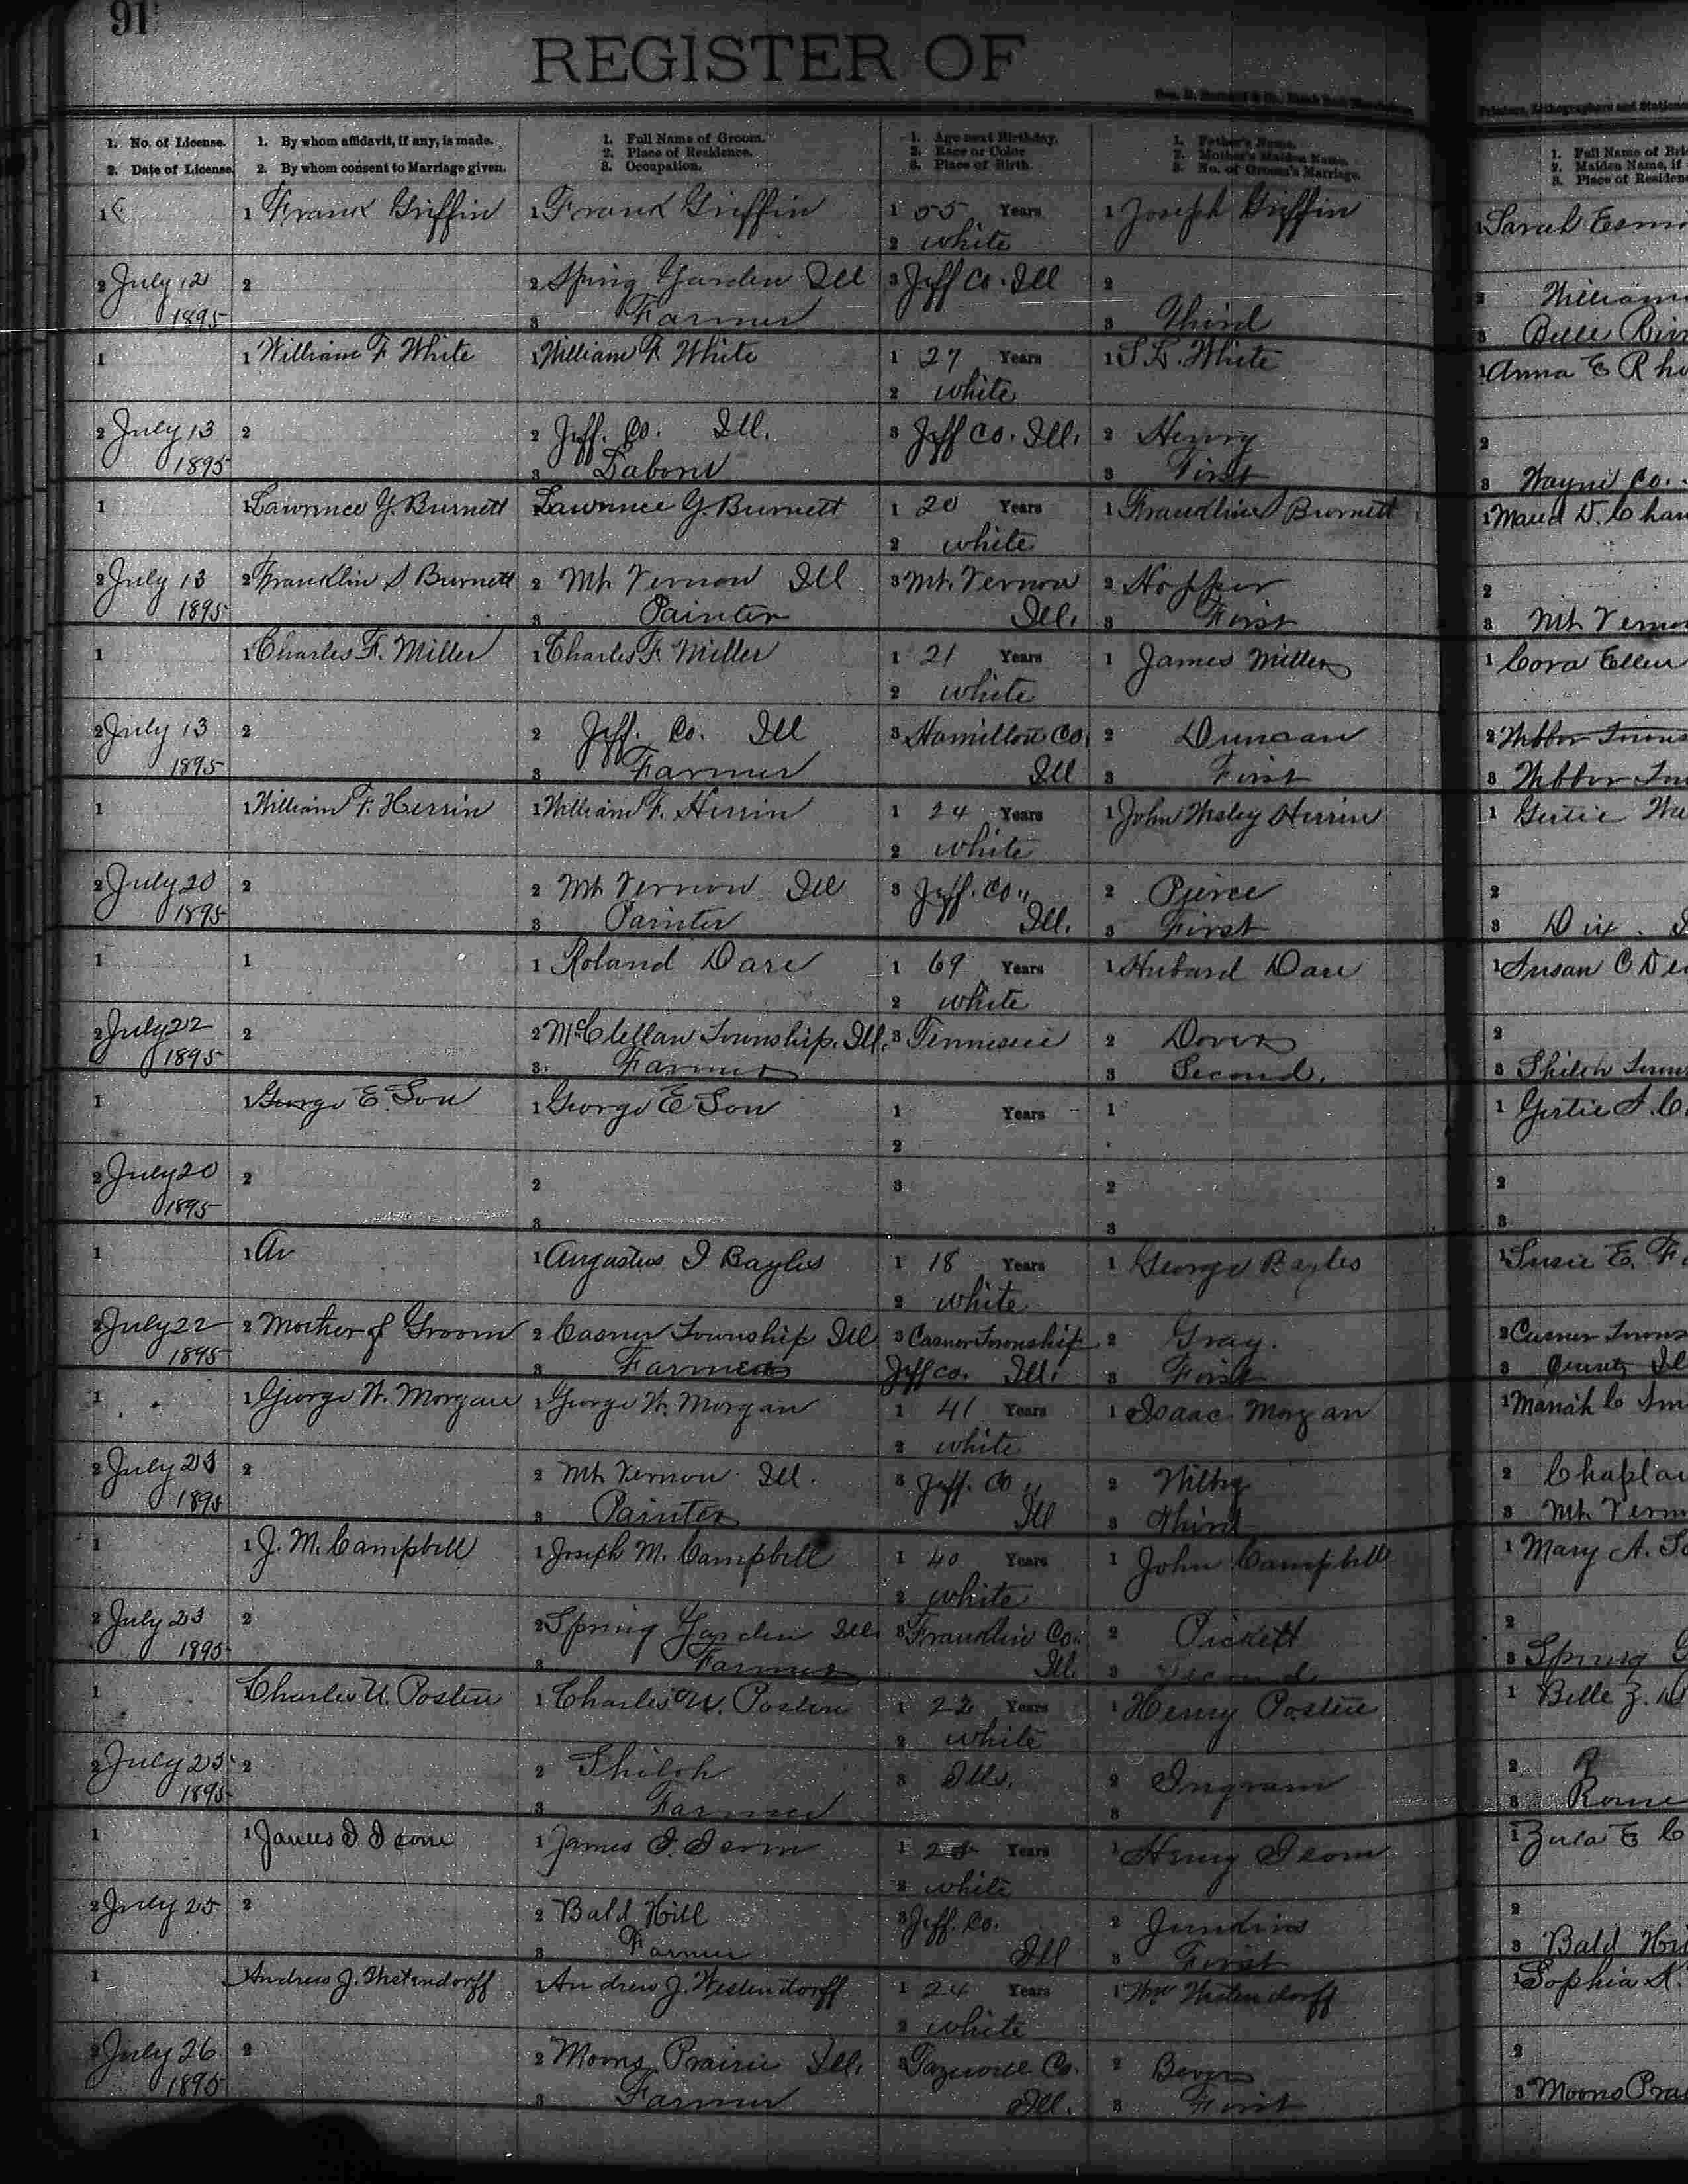 91
REGISTER OF
1. No. of License. 1. By whom affidavit, if any, is made. 1. Full Name of Groom. 1. Age next Birthday. 1. Father's Name. 1. Full Name of
2. Date of License. 2. By whom consent to Marriage given. 2. Place of Residence. 2. Race or Color 2. Mother's Maiden Name. 2. Maiden Name, if
3. Occupation. 3. Place of Birth. 3. No. of Groom's Marriage. 3. Place of
1 1 Frank Griffin 1 Frank Griffin 1 55 Years 1 Joseph Griffin 1 Sarah
2 white
2 July 12 2 2 Spring Garden Ill 3 Jeff Co. Ill 2 2
1895 3 Farmer 3 Third 3 Belle
1 1 William F. White 1 William F. White 1 27 Years 1 White 1 Anna E
2 white
2 July 13 2 2 Jeff. Co. Ill. 3 Jeff Co. Ill. 2 Henry 2
1895 3 3 First 3 Wayne Co.
1 1 Lawrence Y. Burnett 1 Lawrence Y. Burnett 1 20 Years 1 Burnett 1 Maud D.
2 white
2 July 13 2 Franklin S Burnett 2 Mt. Vernon Ill 3 Mt. Vernon 2 Hopper 2
1895 3 Painter Ill. 3 First 3 Mt
1 1 Charles F. Miller 1 Charles F. Miller 1 21 Years 1 James Miller 1 Cora Ellen
2 white
2 July 13 2 2 Jeff. Co. Ill 3 Hamilton Co. 2 Duncan 2
1895 3 Farmer Ill 3 First 3
1 1 William F. Herrin 1 William F. Herrin 1 24 Years 1 John Wesley Herrin 1 Gertie
2 white
2 July 20 2 2 Mt Vernon Ill 3 Jeff. Co., 2 Pierce 2
1895 3 Painter Ill. 3 First 3 Dix.
1 1 1 Roland Dare 1 69 Years 1 Hubard Dare 1 Susan C
2 white
2 July 22 2 2 McClellan Township. Ill. 3 Tennessee 2 Dover 2
1895 3 Farmer 3 Second. 3 Shiloh
1 1 George E. Son 1 George E Son 1 Years 1 1 Gertie
2
2 July 20 2 2 3 2 2
1895 3 3 3
1 1 Au 1 Augustus I Bayles 1 18 Years 1 George Bayles 1 Susie E.
2 white
2 July 22 2 Mother of Groom 2 Casner Township Ill 3 Casner Township 2 Gray. 2 Casner
1895 3 Farmer Jeff co. Ill. 3 First 3
1 1 George W. Morgan 1 George W. Morgan 1 41 Years 1 Isaac Morgan 1
2 white
2 July 23 2 2 Mt Vernon Ill. 3 Jeff. Co., 2 2
1895 3 Painter Ill 3 Third 3 Mt
1 1 J. M. Campbell 1 Joseph M. Campbell 1 40 Years 1 John Campbell 1 Mary A.
2 white
2 July 23 2 2 Spring Garden Ill 3 Franklin Co. 2 Pickett 2
1895 3 Farmer Ill. 3 Second 3 Spring
1 1 Charles U. Posten 1 Charles U. Posten 1 22 Years 1 Henry Posten 1 Belle Z.
2 white
2 July 25 2 2 Shiloh 3 Ills. 2 Ingram 2
1895 3 Farmer 3 3 Rome
1 1 James I 1 James I. 1 Years 1 Henry 1 Zula E
2 white
2 July 25 2 2 Bald Hill 3 Jeff. Co. 2 2
3 Farmer Ill 3 First 3 Bald
1 1 Andrew J. Westendorff 1 Andrew J. Westendorff 1 24 Years 1 Wm Westendorff 1 Sophia
2 white
2 July 26 2 2 Moons Prairie Ill. 3 Tazewell Co. 2 2
1895 3 Farmer Ill. 3 First 3 Moons